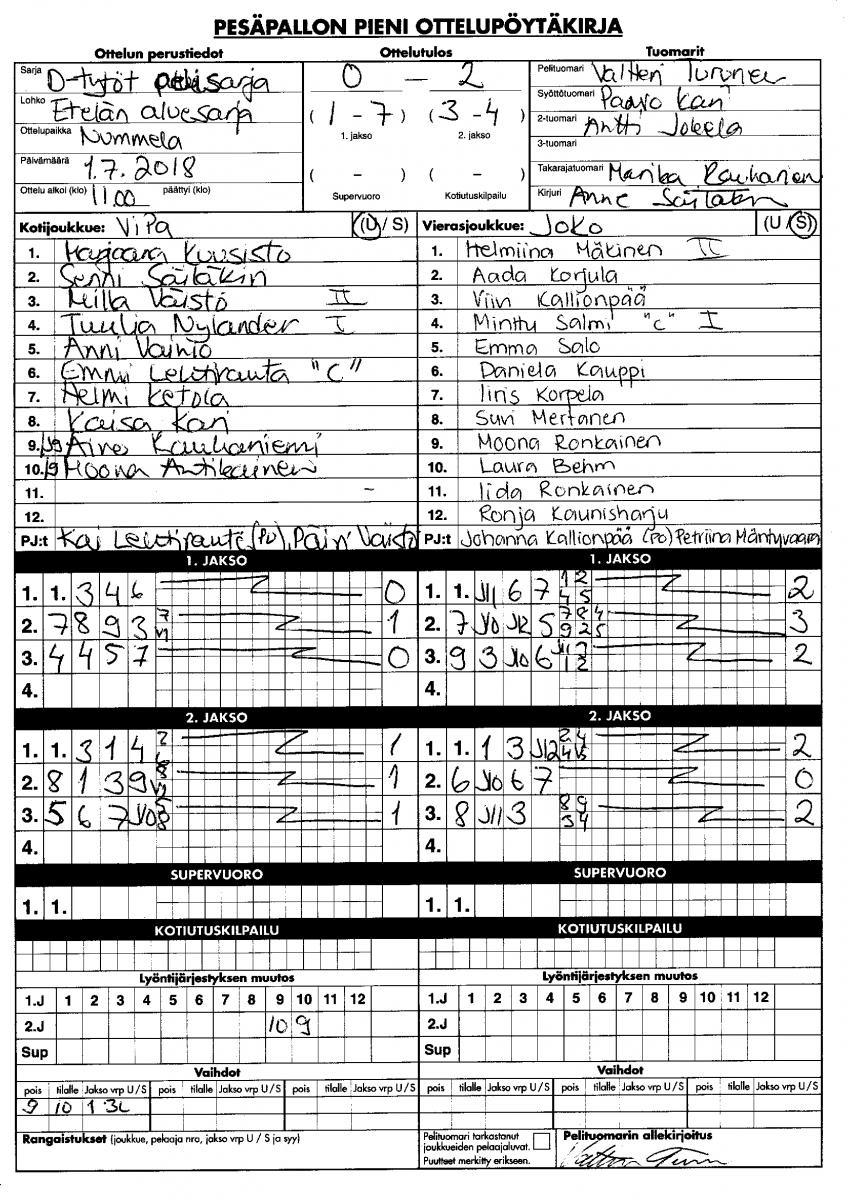 PESÄPALLON PIENI OTTELUPÖYTÄKIRJA
Ottelun perustiedot Ottelutulos Tuomarit
Sarja D-tytöt sarja
Lohko Etelän aluesarja
Ottelupaikka Nummela
Päivämäärä 1.7.2018
Ottelu alkoi (klo) 11.00 päättyi (klo)
0 — 2
( 1 - 7 ) ( 3 - 4 )
1. jakso 2. jakso
( - ) ( - )
Supervuoro Kotiutuskilpailu
Pelituomari Valtteri Turunen
Syöttötuomari Paavo Kari
2-tuomari Antti Jokela
3-tuomari
Takarajatuomari Marika Rauhanen
Kirjuri Anne Säiläkin
Kotijoukkue: ViPa (U / S)
1. Kuusisto
2. Senni Säiläkin
3. Milla Väistö II
4. Tuulia Nylander I
5. Anni Vainio
6. Emmi Lehtirauta "C"
7. Helmi Ketola
8. Kaisa Kari
9. Kauhaniemi
10. Moona Antikainen
11. –
12.
PJ:t Kai Lehtirauta (PJ), Päivi Väistö
Vierasjoukkue: JoKo (U / S)
1. Helmiina Mäkinen II
2. Aada Korjula
3. Viivi Kallionpää
4. Minttu Salmi "C" I
5. Emma Salo
6. Daniela Kauppi
7. Iiris Korpela
8. Suvi Mertanen
9. Moona Ronkainen
10. Laura Behm
11. Iida Ronkainen
12. Ronja Kaunisharju
PJ:t Johanna Kallionpää (PJ) Petriina Mäntyvaara
1. JAKSO 1. JAKSO
1. 1. 3 4 6 0
2. 7 8 9 3 1
3. 4 4 5 7 0
4.
1. 1. J11 6 7 1 2 4 5 2
2. 7 J10 J12 5 7 8 4 9 2 5 3
3. 9 3 J10 6 2
4.
2. JAKSO 2. JAKSO
1. 1. 3 1 4 1
2. 8 1 3 9 1
3. 5 6 7 J10 1
4.
1. 1. 1 3 J12 2
2. 6 J10 6 7 0
3. 8 J11 3 8 9 3 4 2
4.
SUPERVUORO SUPERVUORO
1. 1. 1. 1.
KOTIUTUSKILPAILU KOTIUTUSKILPAILU
Lyöntijärjestyksen muutos Lyöntijärjestyksen muutos
1.J 1 2 3 4 5 6 7 8 9 10 11 12 1.J 1 2 3 4 5 6 7 8 9 10 11 12
2.J 10 9 2.J
Sup Sup
Vaihdot Vaihdot
pois tilalle Jakso vrp U/S pois tilalle Jakso vrp U/S pois tilalle Jakso vrp U/S pois tilalle Jakso vrp U/S pois tilalle Jakso vrp U/S pois tilalle Jakso vrp U/S
9 10 1 3L
Rangaistukset (joukkue, pelaaja nro, jakso vrp U / S ja syy)
Pelituomari tarkastanut
joukkueiden pelaajaluvat.
Puutteet merkitty erikseen.
Pelituomarin allekirjoitus